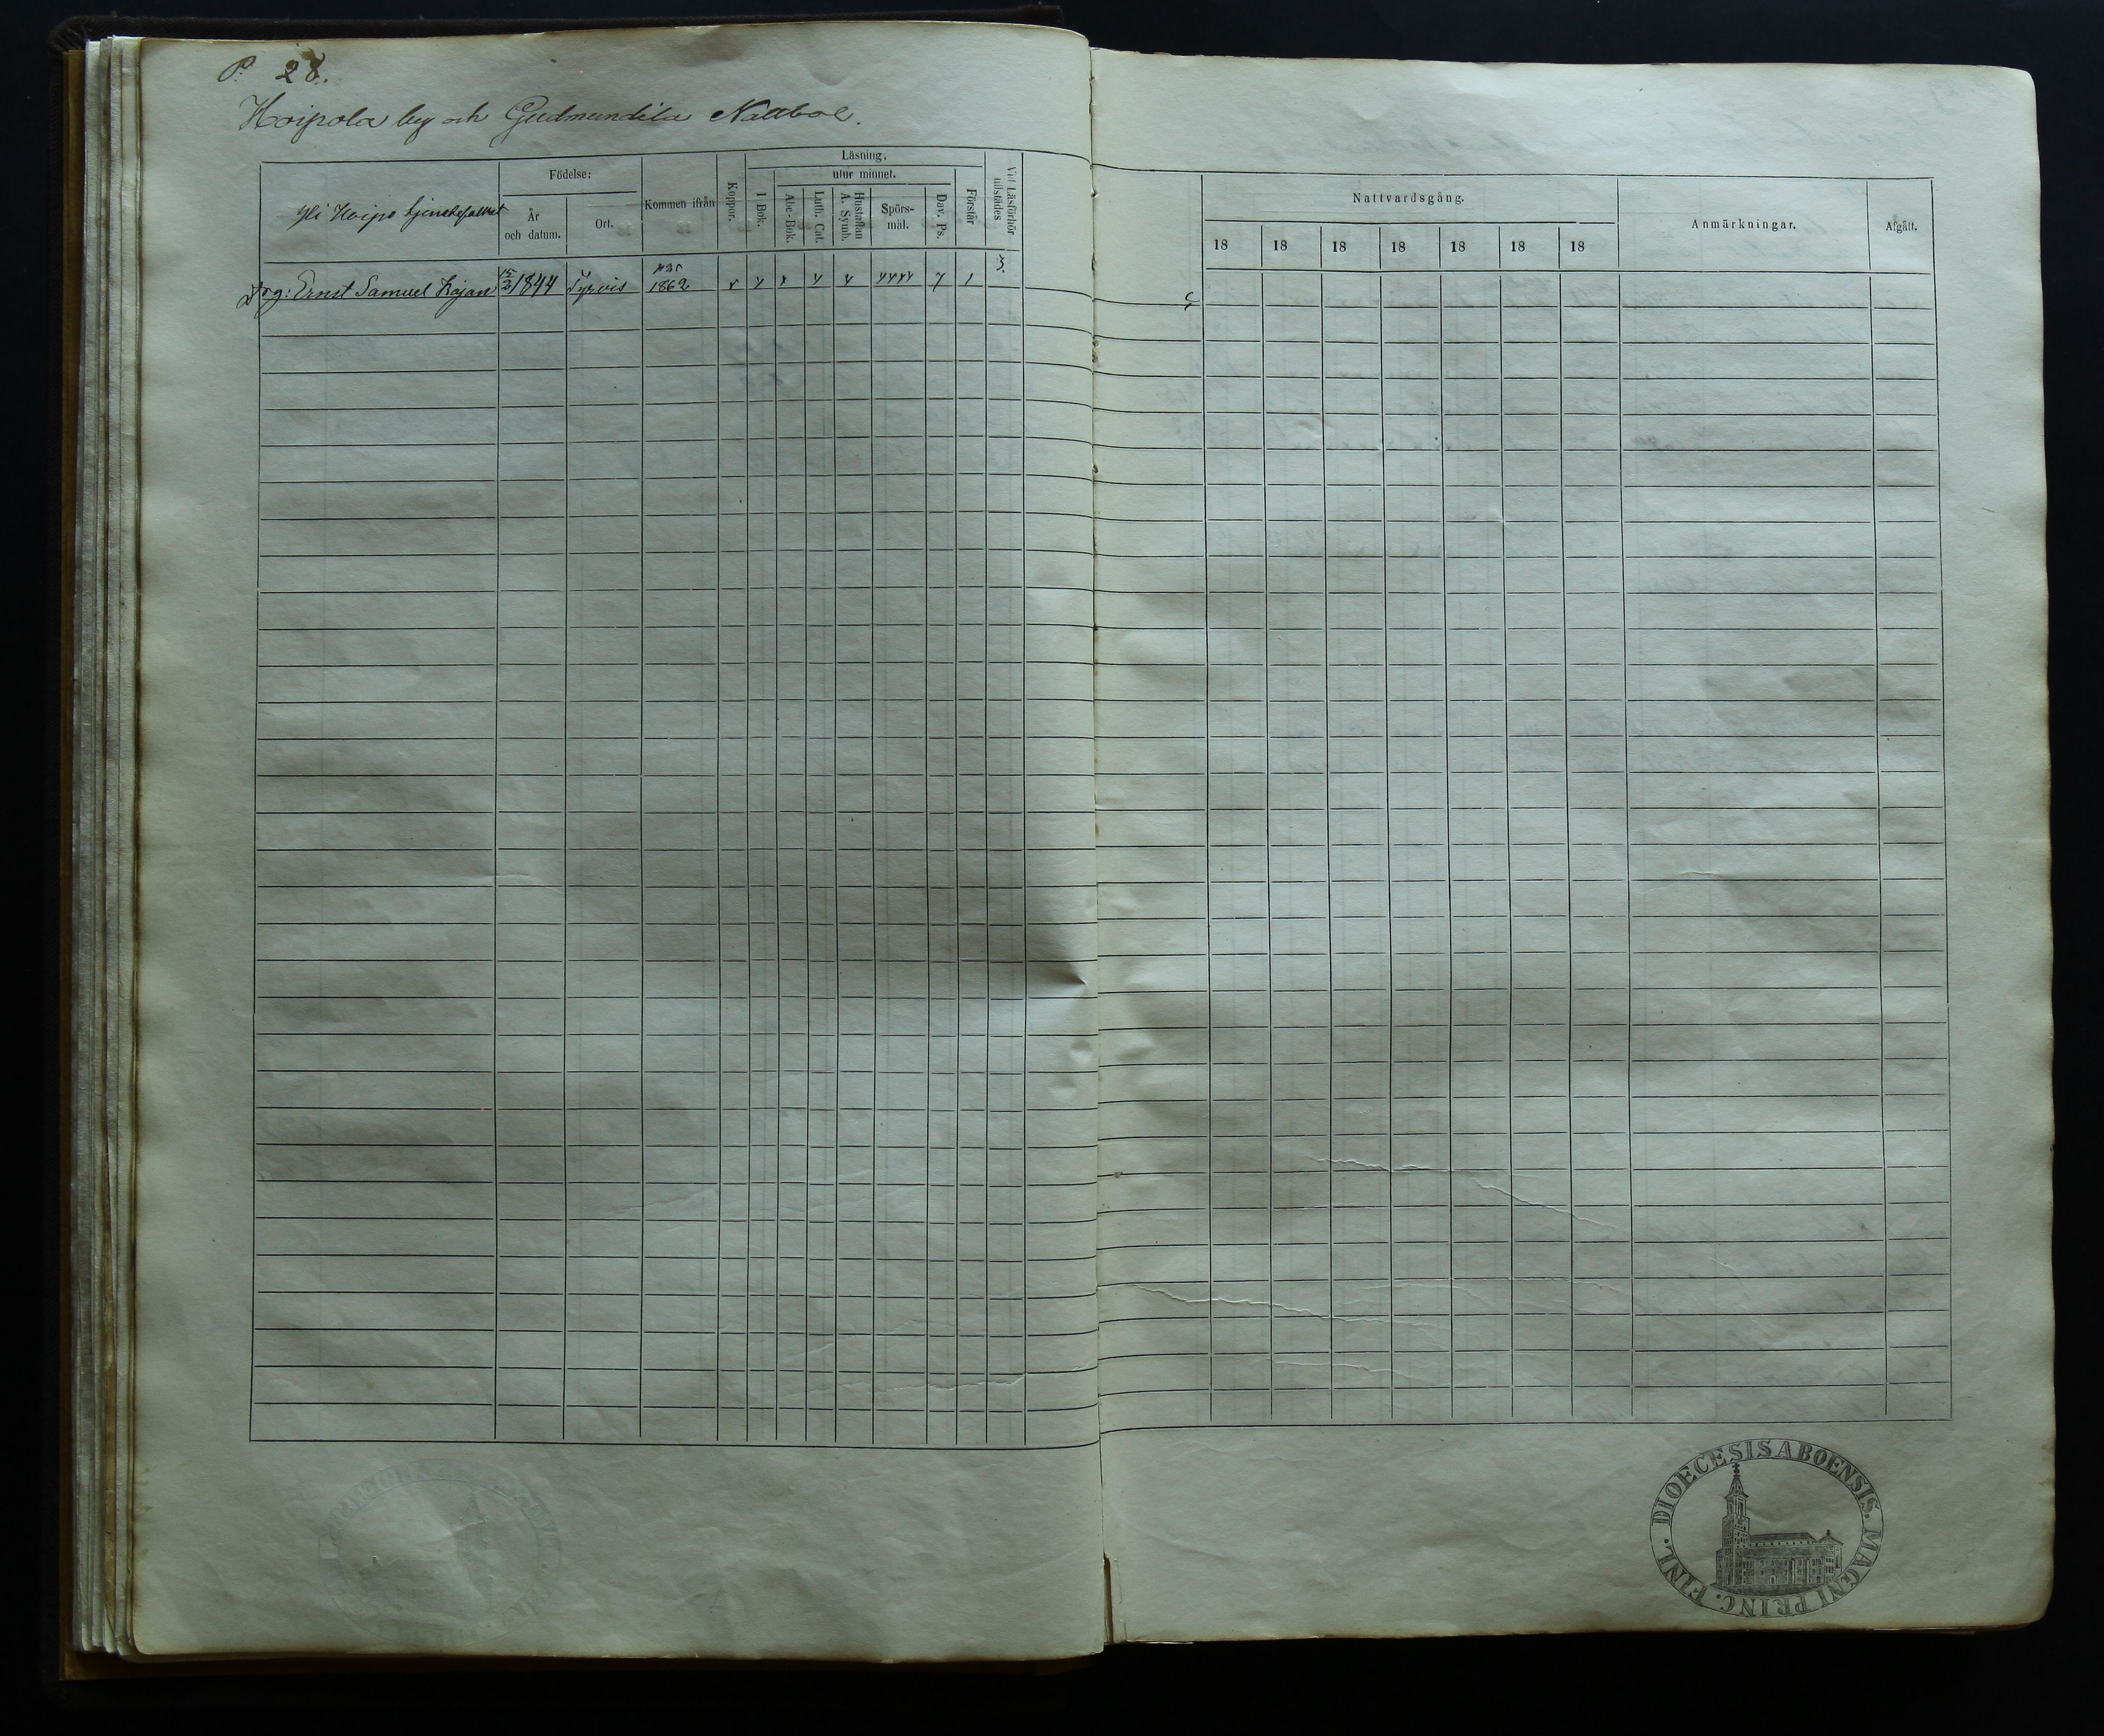 P. 28.
Hoipola by och Gudmundila Nattbol.
Yli Hoipo tjenstefolket
Födelse:
År och datum.
Ort.
Kommen ifrån
Koppor.
Läsning.
I Bok.
utur minnet.
Abc-Bok.
Luth. Cat.
Hustaflan A. Symb.
Spörsmål.
Dav. Ps.
Förstår
Vid Läsförhör tillstädes
Nattvardsgång.
18 18 18 18 18 18 18
Anmärkningar.
Afgått.
drg: Ernst Samuel Kojan 15/2 1844 Tyrvis 1862
3.
DIOECESIS ABOENSIS. MAGNI PRINC. FINL.